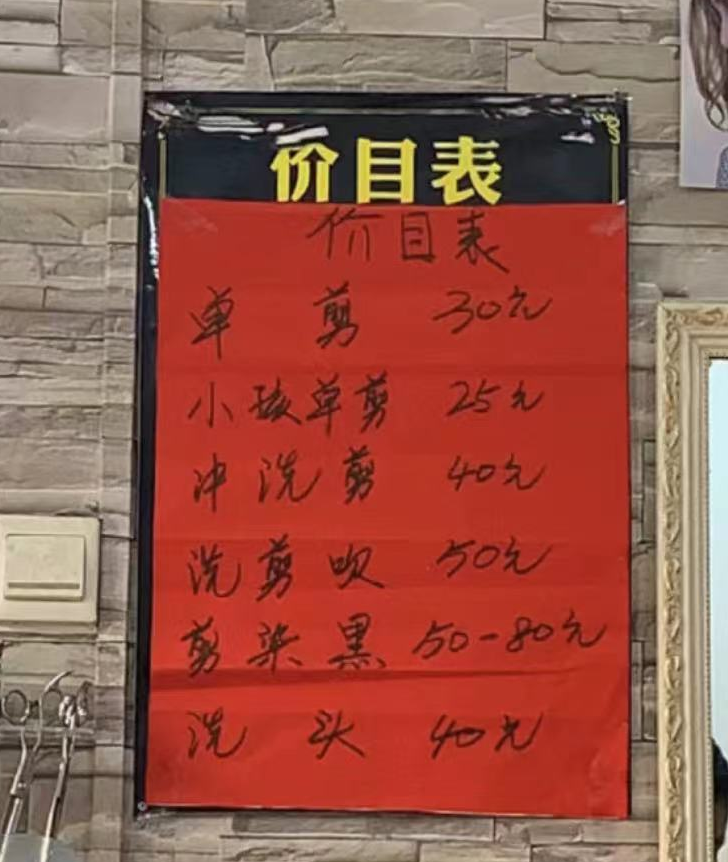 价目表
价目表
单 剪 30元
小孩单剪 25元
冲洗剪 40元
洗剪吹 50元
剪染黑 50-80元
洗 头 40元